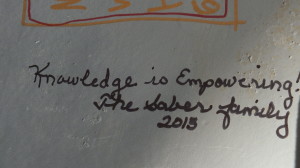 Knowledge is Empowering!
The Saber family
2015